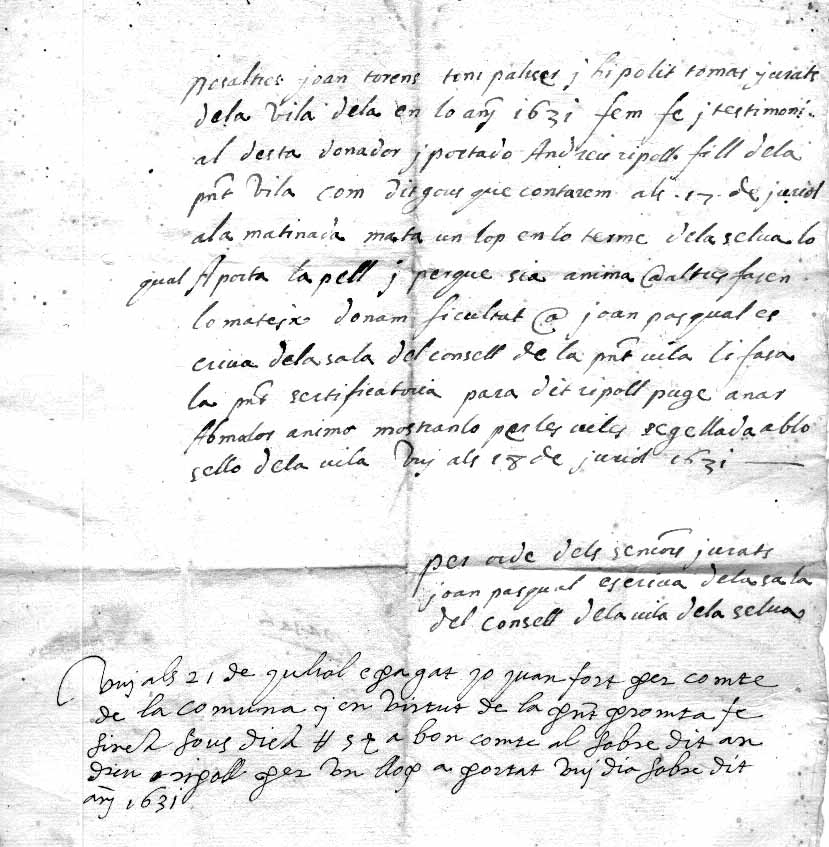 nosaltres joan torens toni palises j hipolit tomas jurats
dela vila dela en lo anj 1631 fem fe j testimoni
al desta donador j portado Andreu ripoll fill dela
pnt vila com ditgous que contarem als .17 de juriol
ala matinada mata un lop en lo terme dela selva lo
qual Aporta la pell j perque sia anima @ altres fasen
lo mateix donam ficultat @ joan pasqual es
criva dela sala del consell de la pnt vila li fasa
la pnt sertificatoria para dit ripoll puge anar
animo mostranlo per les viles segellada ablo
sello dela vila vuj als 18 de juriol 1631
per orde dels senors jurats
joan pasqual escriva dela sala
del consell dela vila dela selva
vuj als 21 de juliol e pagat jo juan fort per comte
de la comuna j en virtut de la pnt promta fe
sinch sous dich # 5 a bon comte al sobre dit an
dreu ripoll per un llop a portat vuj dia sobre dit
anj 1631